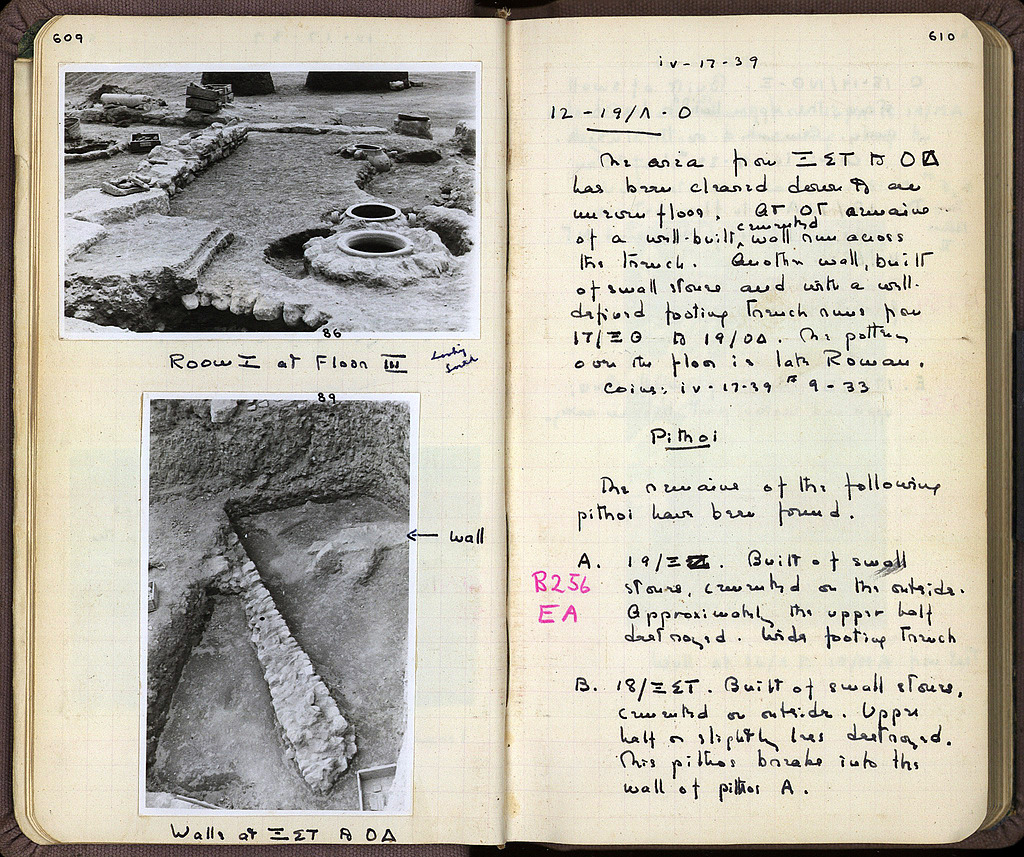 609
86
Room I at Floor III Looking South
89
← wall
Walls at ΞΣΤ to ΟΔ
610
iv-17-39
12-19/Λ-Ο
The area from ΞΣΤ to ΟΔ
has been cleared down to an
uneven floor. At ΟΤ remains
of a well-built cemented wall run across
the trench. Another wall, built
of small stones and with a well-
defined footing trench runs from
17/ΞΘ to 19/ΟΔ. The pottery
over the floor is late Roman.
Coins: iv-17-39 # 9-33
Pithoi
The remains of the following
pithoi have been found.
A. 19/Ξ. Built of small
stones, cemented on the outside.
B256
EA
Approximately the upper half
destroyed. Wide footing trench
B. 18/ΞΣΤ. Built of small stones,
cemented on outside. Upper
half or slightly less destroyed.
This pithos breaks into the
wall of pithos A.